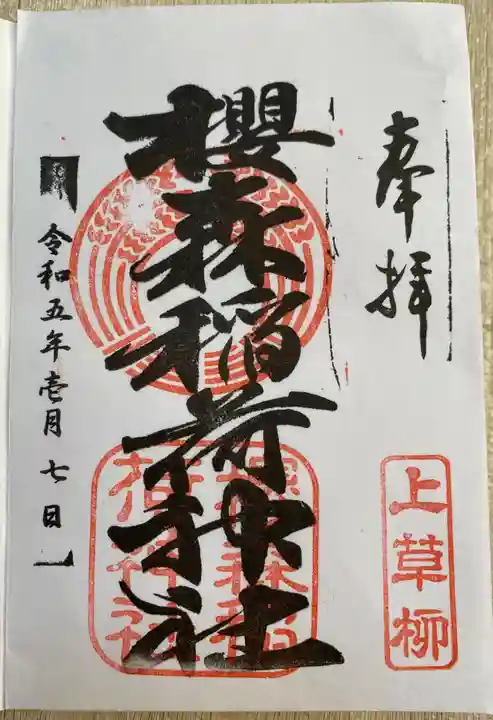 奉拝
上草柳
櫻森稲荷神社
櫻森稲
荷神社
令和五年壱月七日